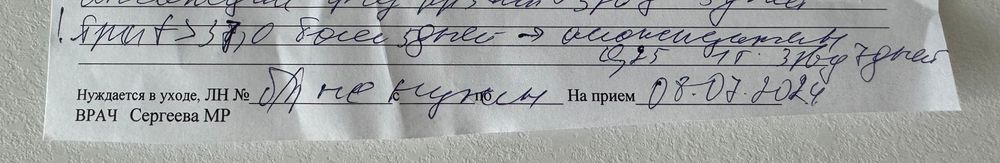 ! При t > 37,0 более 5 дней → амоксициллин
0,25 1т 3р/д 7 дней
Нуждается в уходе, ЛН № б/л не нужен с по На прием 08.07.2024
ВРАЧ Сергеева МР